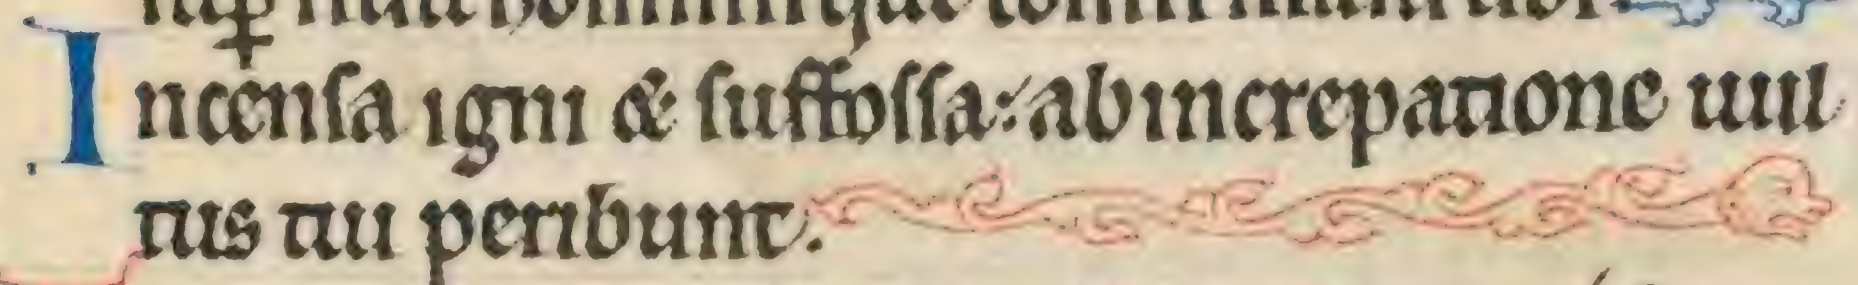 Incensa igni & suffossa: ab increpatione uul
tus tui peribunt.